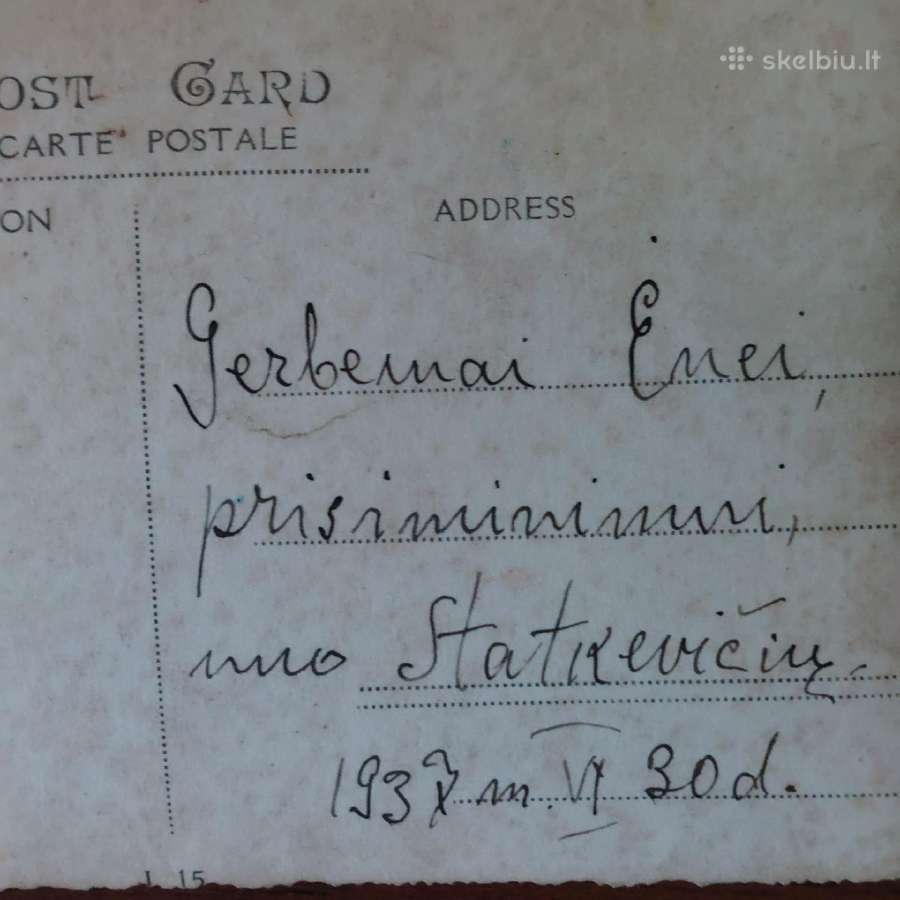 skelbiu.lt
OST CARD
CARTE POSTALE
ON
ADDRESS
Gerbemai Ėnei,
prisiminimui,
nuo Statkevičių.
1937 m. VI 30 d.
J. 15